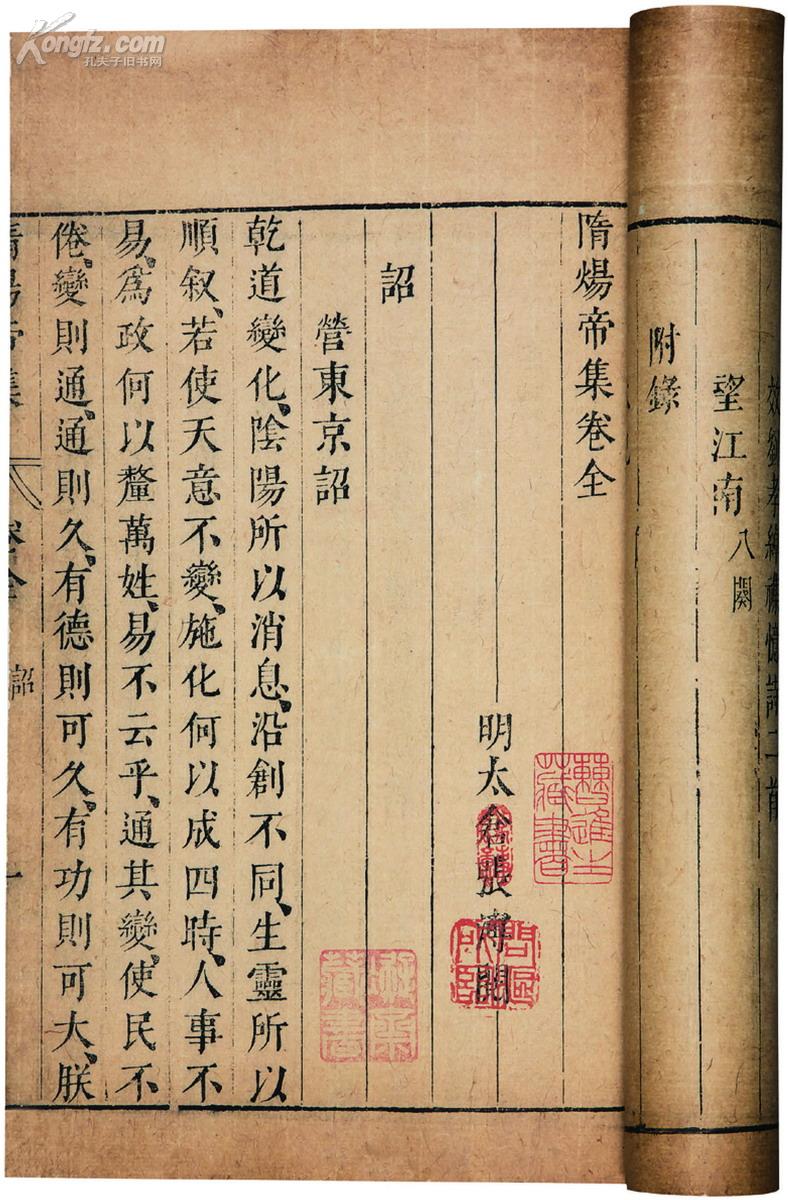 Kongfz.com
孔夫子旧书网
望江南八闋
附錄
隋煬帝集卷全
明太倉張溥閱
詔
營東京詔
乾道變化、陰陽所以消息、沿創不同、生靈所以
順叙、若使天意不變、施化何以成四時、人事不
易、為政何以釐萬姓、易不云乎、通其變、使民不
倦、變則通、通則久、有德則可久、有功則可大、朕
隋煬帝集 卷全 詔 一